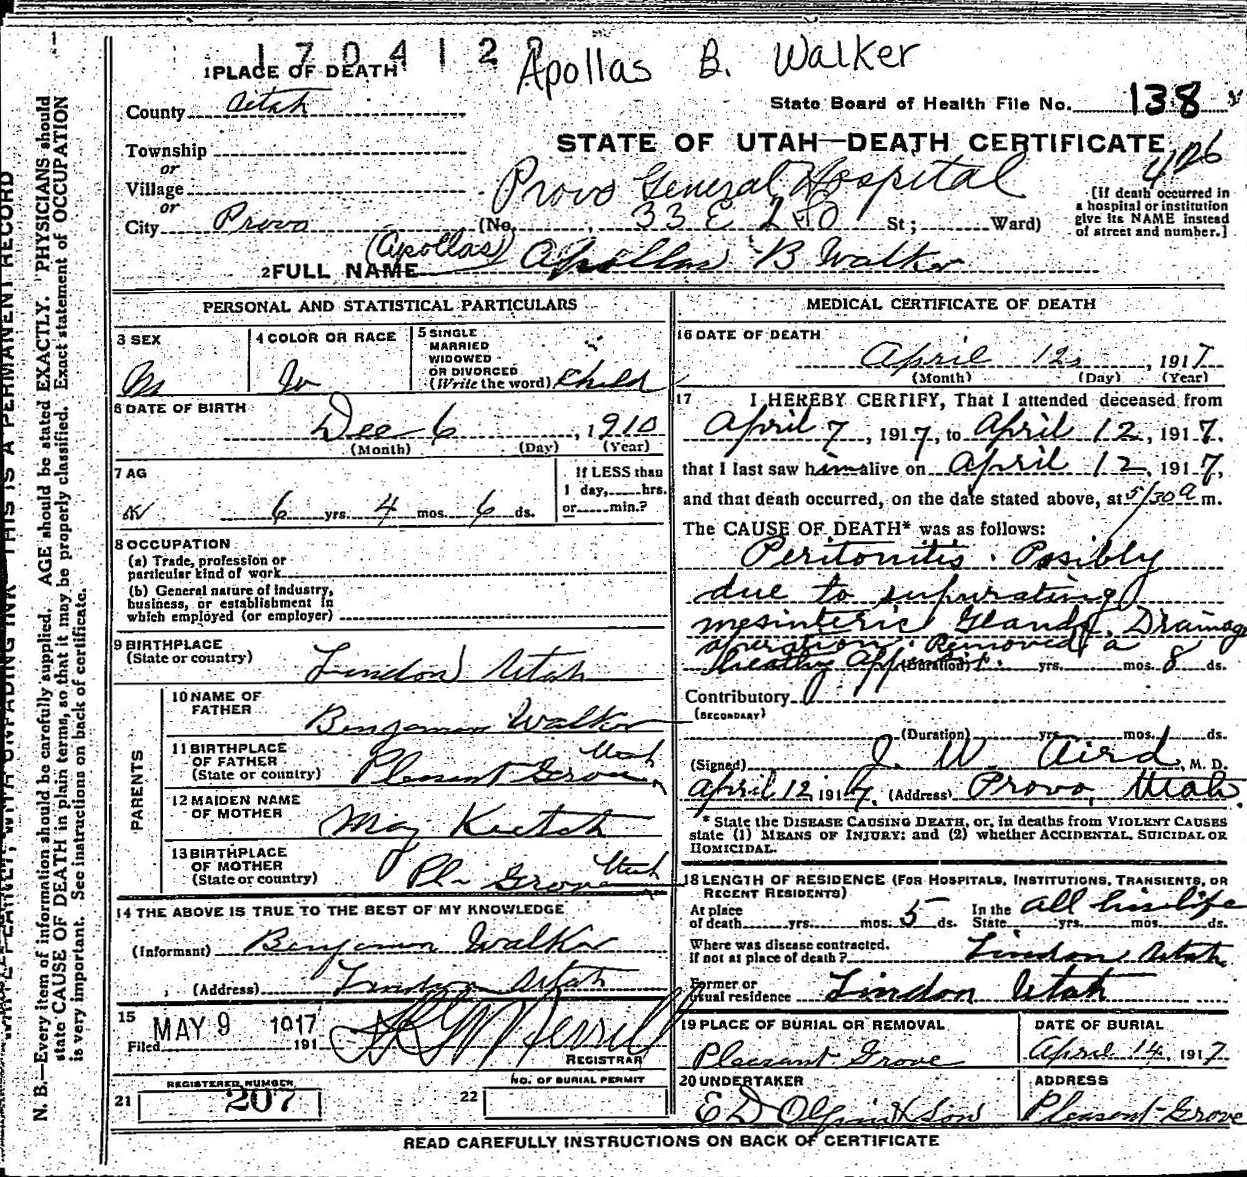 1704128
Apollas B. Walker
1 PLACE OF DEATH
County Utah
State Board of Health File No. 138
STATE OF UTAH—DEATH CERTIFICATE
426
Township
or
Village
or
City Provo
Provo General Hospital
(No. 33 E 2 St; Ward)
[If death occurred in a hospital or institution give its NAME instead of street and number.]
(Apollas)
2 FULL NAME Apollas B Walker
PERSONAL AND STATISTICAL PARTICULARS
3 SEX
M
4 COLOR OR RACE
W
5 SINGLE
MARRIED
WIDOWED
OR DIVORCED
(Write the word) Child
6 DATE OF BIRTH
Dec 6, 1910
(Month) (Day) (Year)
7 AG
6 yrs. 4 mos. 6 ds.
If LESS than
1 day, hrs.
or min.?
8 OCCUPATION
(a) Trade, profession or
particular kind of work
(b) General nature of industry,
business, or establishment in
which employed (or employer)
9 BIRTHPLACE
(State or country) Lindon Utah
PARENTS
10 NAME OF
FATHER Benjamin Walker
11 BIRTHPLACE
OF FATHER
(State or country) Pleasant Grove Utah
12 MAIDEN NAME
OF MOTHER May Keetch
13 BIRTHPLACE
OF MOTHER
(State or country) Pl. Grove Utah
14 THE ABOVE IS TRUE TO THE BEST OF MY KNOWLEDGE
(Informant) Benjamin Walker
(Address) Lindon Utah
15
Filed MAY 9 1917 191
REGISTRAR
21 REGISTERED NUMBER
207
22 NO. OF BURIAL PERMIT
MEDICAL CERTIFICATE OF DEATH
16 DATE OF DEATH
April 12, 1917
(Month) (Day) (Year)
17 I HEREBY CERTIFY, That I attended deceased from
April 7, 1917, to April 12, 1917.
that I last saw him alive on April 12, 1917,
and that death occurred, on the date stated above, at 5/30 a m.
The CAUSE OF DEATH* was as follows:
Peritonitis. Possibly
due to supurating
mesinteric Glands. Drainage
operation. Removed a
healthy App
(Duration) yrs. mos. 8 ds.
Contributory
(SECONDARY)
(Duration) yrs. mos. ds.
(Signed) J. W. Aird, M. D.
April 12 1917. (Address) Provo, Utah.
* State the DISEASE CAUSING DEATH, or, in deaths from VIOLENT CAUSES
state (1) MEANS OF INJURY; and (2) whether ACCIDENTAL, SUICIDAL OR
HOMICIDAL.
18 LENGTH OF RESIDENCE (FOR HOSPITALS, INSTITUTIONS, TRANSIENTS, OR
RECENT RESIDENTS)
At place
of death yrs. mos. 5 ds. In the State all his life yrs. mos. ds.
Where was disease contracted.
If not at place of death? Lindon, Utah
Former or
usual residence Lindon Utah
19 PLACE OF BURIAL OR REMOVAL
Pleasant Grove
DATE OF BURIAL
April 14, 1917
20 UNDERTAKER
E D Olpin & Son
ADDRESS
Pleasant Grove
READ CAREFULLY INSTRUCTIONS ON BACK OF CERTIFICATE
WRITE PLAINLY, WITH UNFADING INK—THIS IS A PERMANENT RECORD
N. B.—Every item of information should be carefully supplied. AGE should be stated EXACTLY. PHYSICIANS should
state CAUSE OF DEATH in plain terms, so that it may be properly classified. Exact statement of OCCUPATION
is very important. See instructions on back of certificate.